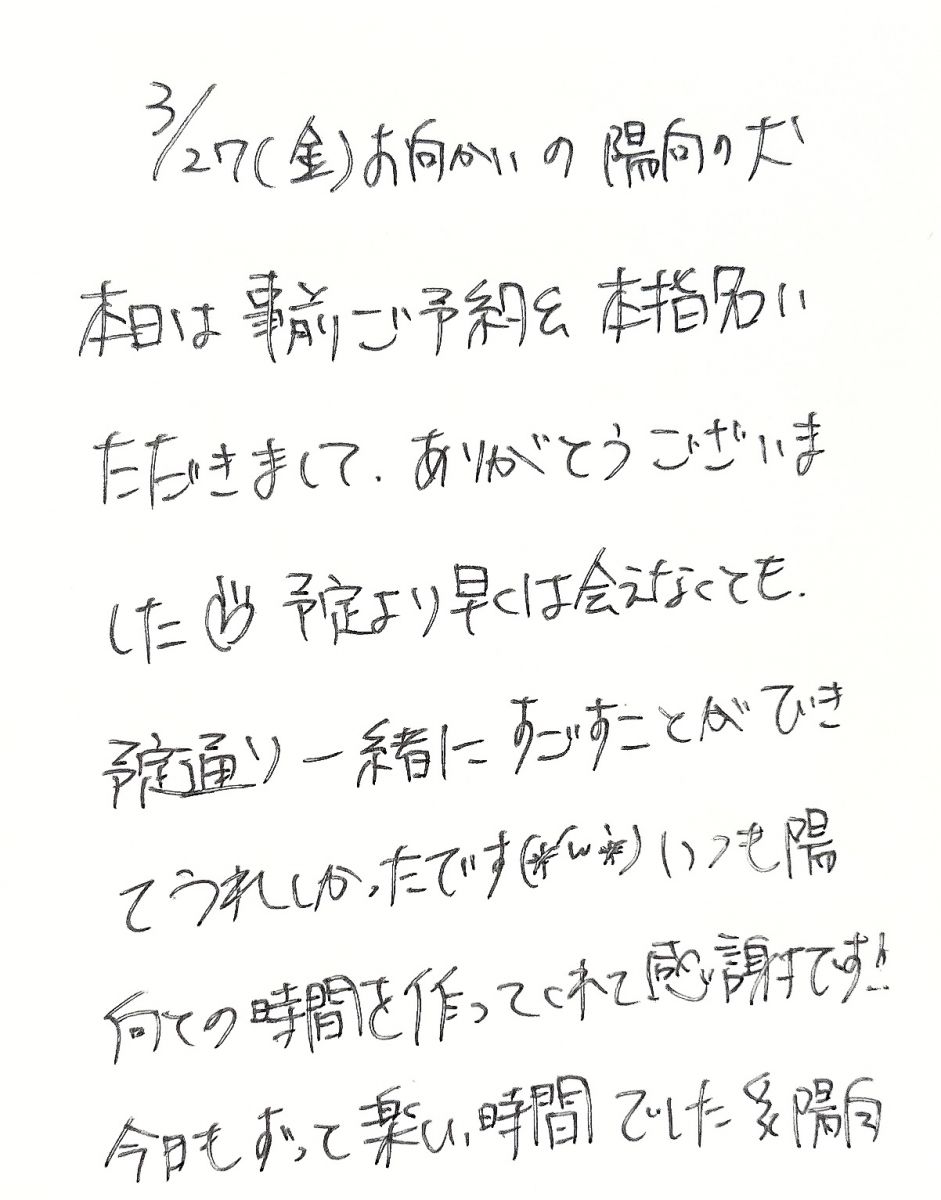 3/27(金)お向かいの陽向の犬
本日は事前ご予約&本指名い
ただきまして、ありがとうございま
した 予定より早くは会えなくても、
予定通り一緒にすごすことができ
てうれしかったです(*´ω`*)いつも陽
向との時間を作ってくれて感謝です!!
今日もずっと楽しい時間でした 陽向